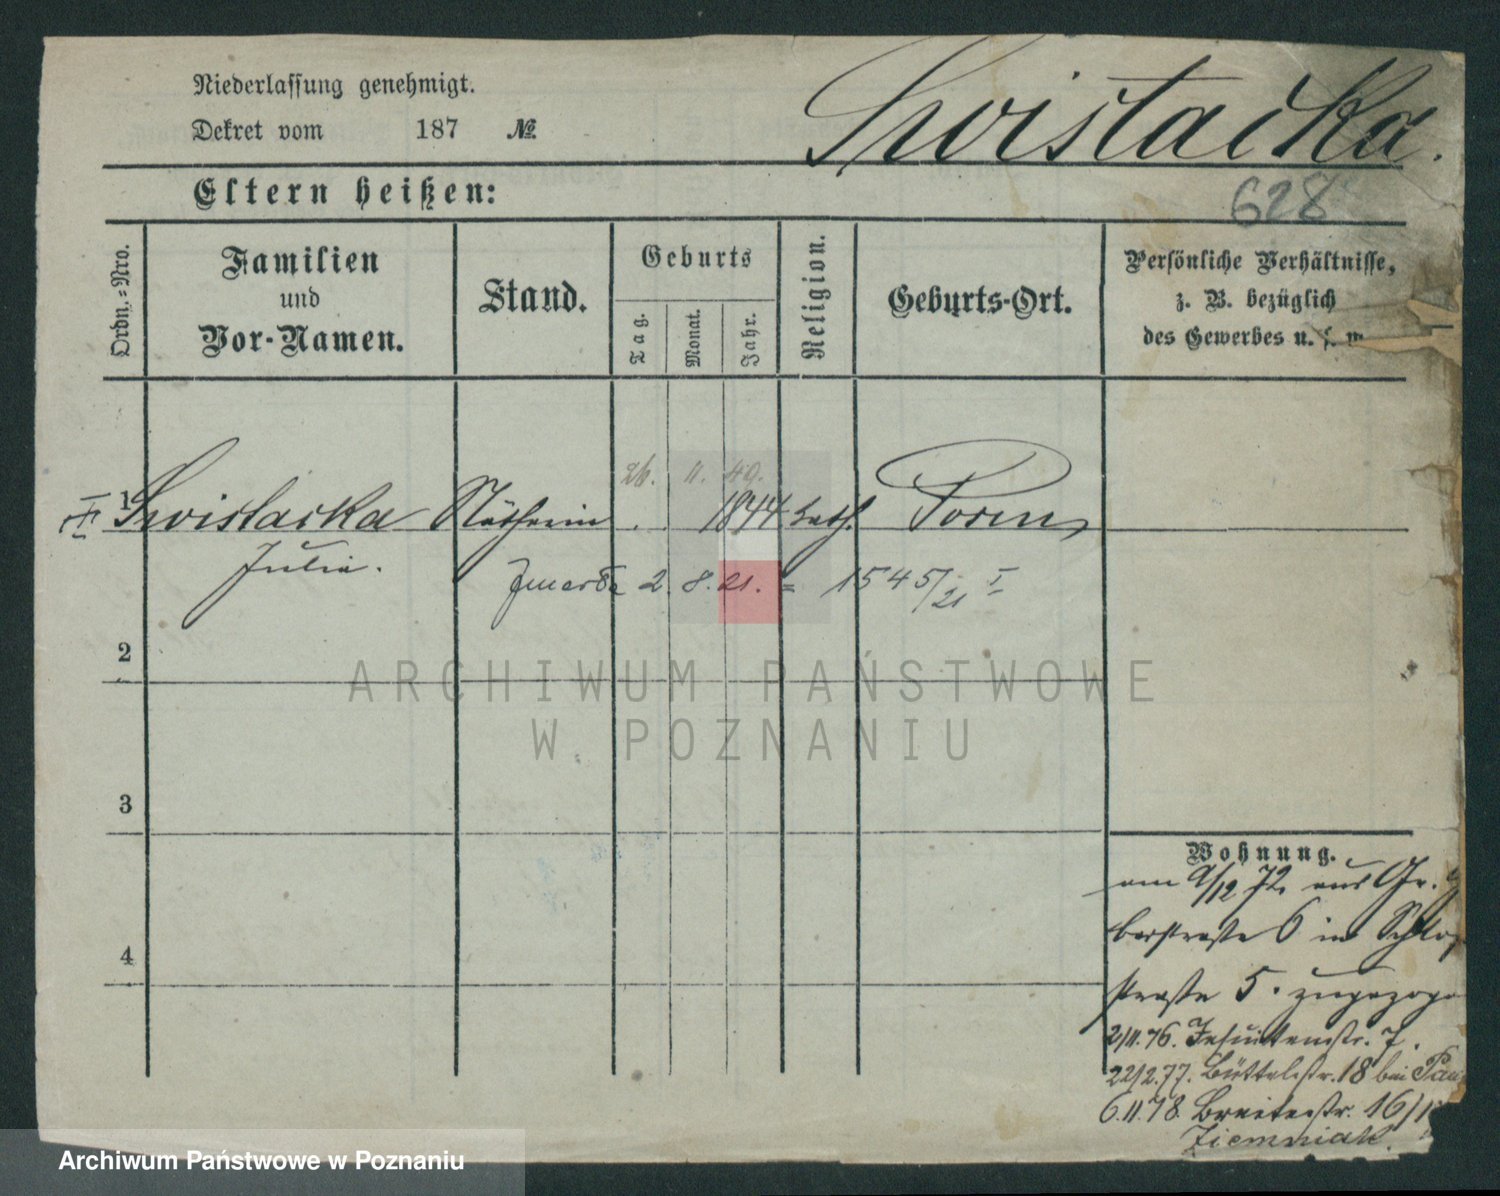 Niederlassung genehmigt.
Dekret vom 187 №
Swistacka.
Eltern heißen:
628
Ordn.-Nro.
Familien
und
Vor-Namen.
Stand.
Geburts
Tag.
Monat.
Jahr.
Religion.
Geburts-Ort.
Persönliche Verhältnisse,
z. B. bezüglich
des Gewerbes u. s. w.
26. 11. 49.
1 Swistacka Nätherin 1844 kath. Posen
Julie.
Zmarła 2. 8. 21. = 1545/21 I
2
ARCHIWUM PAŃSTWOWE
W POZNANIU
3
4
Wohnung.
am 9/12 72 aus Gr.
berstraße 6 in Schloß
straße 5. zugezogen
2/11.76. Jesuitenstr. 7.
22/2.77. Büttelstr. 18 bei
6.11.78. Breitestr. 16/
Ziemniak.
Archiwum Państwowe w Poznaniu